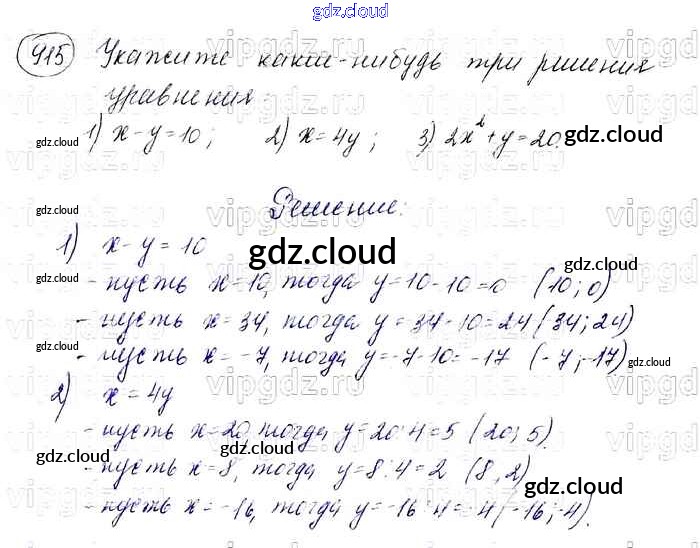 gdz.cloud
915 Укажите какие-нибудь три решения
уравнения:
1) x - y = 10; 2) x = 4y; 3) 2x² + y = 20.
Решение:
1) x - y = 10
- пусть x = 10, тогда y = 10 - 10 = 0 (10; 0)
- пусть x = 34, тогда y = 34 - 10 = 24 (34; 24)
- пусть x = -7, тогда y = -7 - 10 = -17 (-7; -17)
2) x = 4y
- пусть x = 20, тогда y = 20 : 4 = 5 (20; 5).
- пусть x = 8, тогда y = 8 : 4 = 2 (8; 2)
- пусть x = -16, тогда y = -16 : 4 = -4 (-16; -4).
gdz.cloud
gdz.cloud
gdz.cloud
gdz.cloud
gdz.cloud
gdz.cloud
gdz.cloud
gdz.cloud
gdz.cloud
gdz.cloud
vipgdz.ru